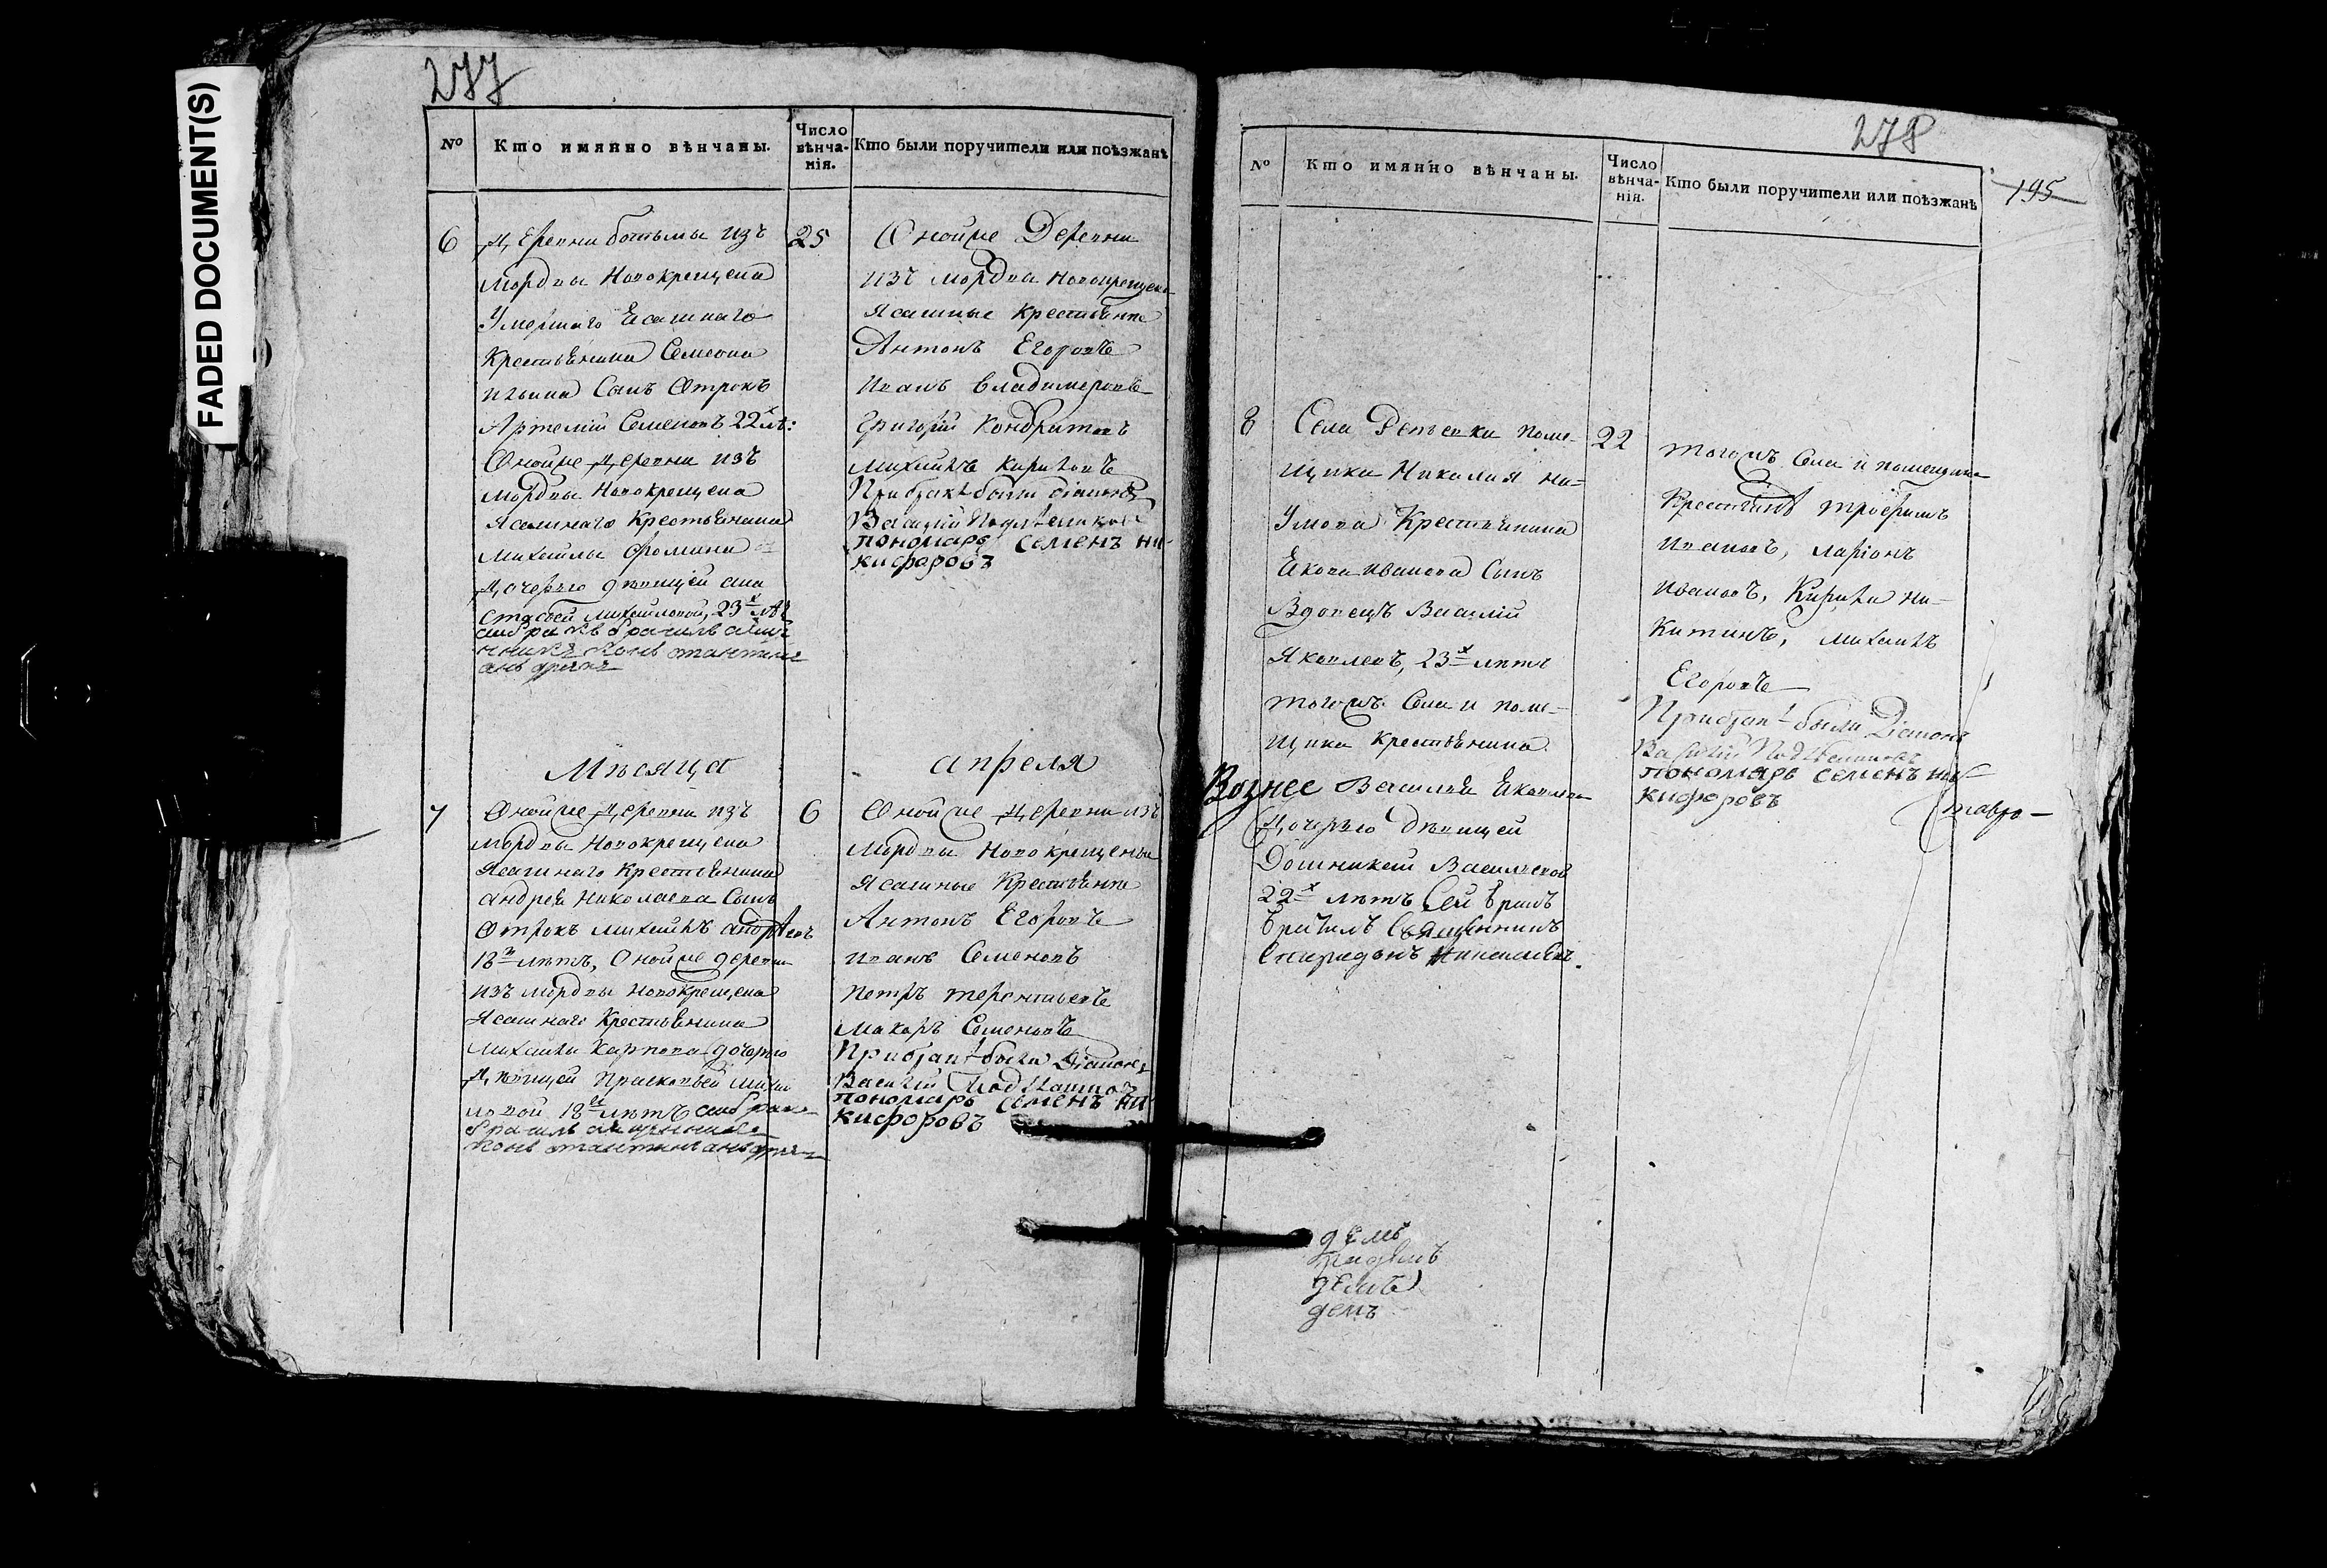 FADED DOCUMENT(S)
277
№
Кто имянно вѣнчаны.
Число вѣнча-нія.
Кто были поручители или поѣзжанѣ
6
Деревни ботьмы изъ
Мордвы Новокрещена
Умершаго Есашнаго
Крестьянина Семиона
Ильина Сынъ Отрокъ
Артемій Семеновъ 22х лѣ:
Оной же Деревни изъ
мордвы Новокрещена
Ясашнаго Крестьянина
михайлы Фомина
Дочерью девицей ана
стасьей михайловой, 23х лѣ
Конъстантинъ
анъдреевъ
25
Оной же Деревни
изъ Мордвы новокрещены
Ясашные Крестьяне
Антонъ Егоровъ
Иванъ владимеровъ
Григорій Кондратьевъ
михайлъ Кириловъ
При бракѣ были діаконъ
Василій
пономарь семенъ ни-
кифоровъ
Мѣсяца
апреля
7
Оной же Деревни изъ
мордвы Новокрещена
Ясашнаго Крестьянина
андрея николаева Сынъ
Отрокъ михайлъ андреевъ
18ти лѣтъ, Оной же деревни
изъ мордвы новокрещена
Ясашнаго Крестьянина
михайлы Карпова дочерью
Девицей Прасковьей михаи
ловой 18ти лѣтъ сий бракъ
брачилъ священникъ
Конъстантинъ анъдреевъ
6
Оной же Деревни изъ
мордвы Новокрещены
Ясашные Крестьяне
Антонъ Егоровъ
иванъ Семеновъ
Петръ терентьевъ
макаръ Семеновъ
При бракѣ были Діаконъ
Василій
пономарь семенъ ни
кифоровъ
278
195
№
Кто имянно вѣнчаны.
Число вѣнча-нія.
Кто были поручители или поѣзжанѣ
8
Села Репьевки поме-
щика Николая на-
Умова Крестьянина
Екова иванова Сынъ
Вдовецъ Василій
Яковлевъ, 23х лѣтъ
того жъ Села и поме-
щика Крестьянина
Вознесе
Василья Яковлева
Дочерью девицей
Домникей Васильевой
22х лѣтъ Сей бракъ
брачилъ Священникъ
Спиридонъ
22
того жъ Села и помещика
Крестьянѣ трофимъ
ивановъ, ларіонъ
ивановъ, Кирила Ни-
китинъ, михайлъ
Егоровъ
При бракѣ были Діаконъ
Василій
пономарь семенъ ни
кифоровъ
Ставро-
демъ
демъ
демъ